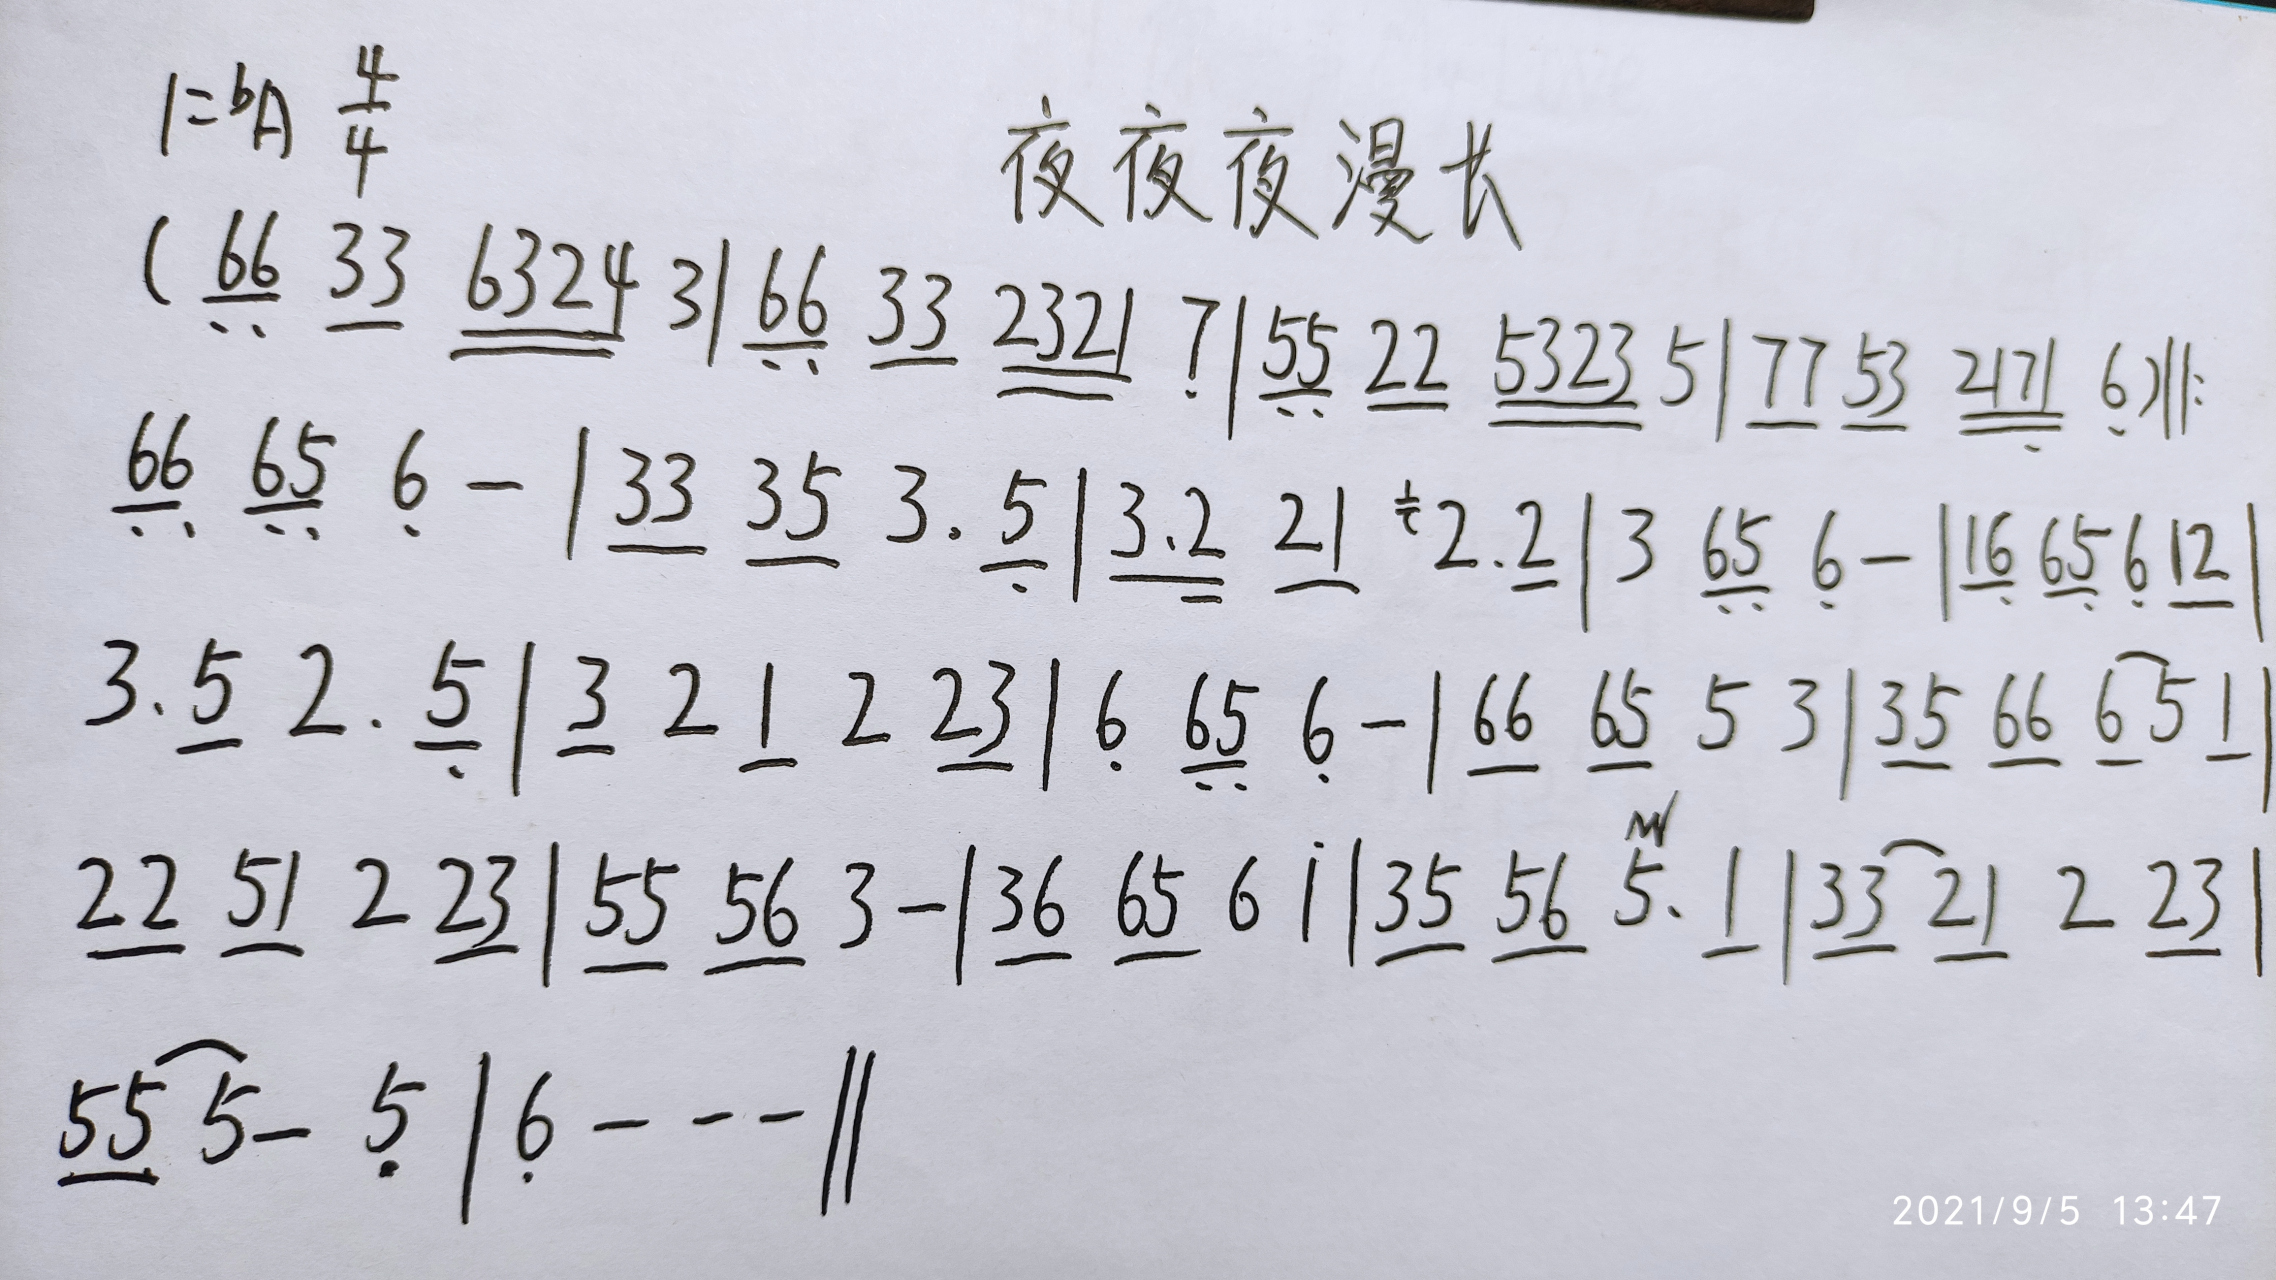 1=bA 4/4
夜夜夜漫长
( 66 33 6324 3 | 66 33 2321 7 | 55 22 5323 5 | 77 53 2171 6 ) ‖:
66 65 6 - | 33 35 3. 5 | 3.2 21 2.2 | 3 65 6 - | 16 65 6 12 |
3. 5 2. 5 | 3 2 1 2 23 | 6 65 6 - | 66 65 5 3 | 35 66 6 5 1 |
22 51 2 23 | 55 56 3 - | 36 65 6 i | 35 56 5. 1 | 33 21 2 23 |
55 5 - 5 | 6 - - - ‖
2021/9/5 13:47